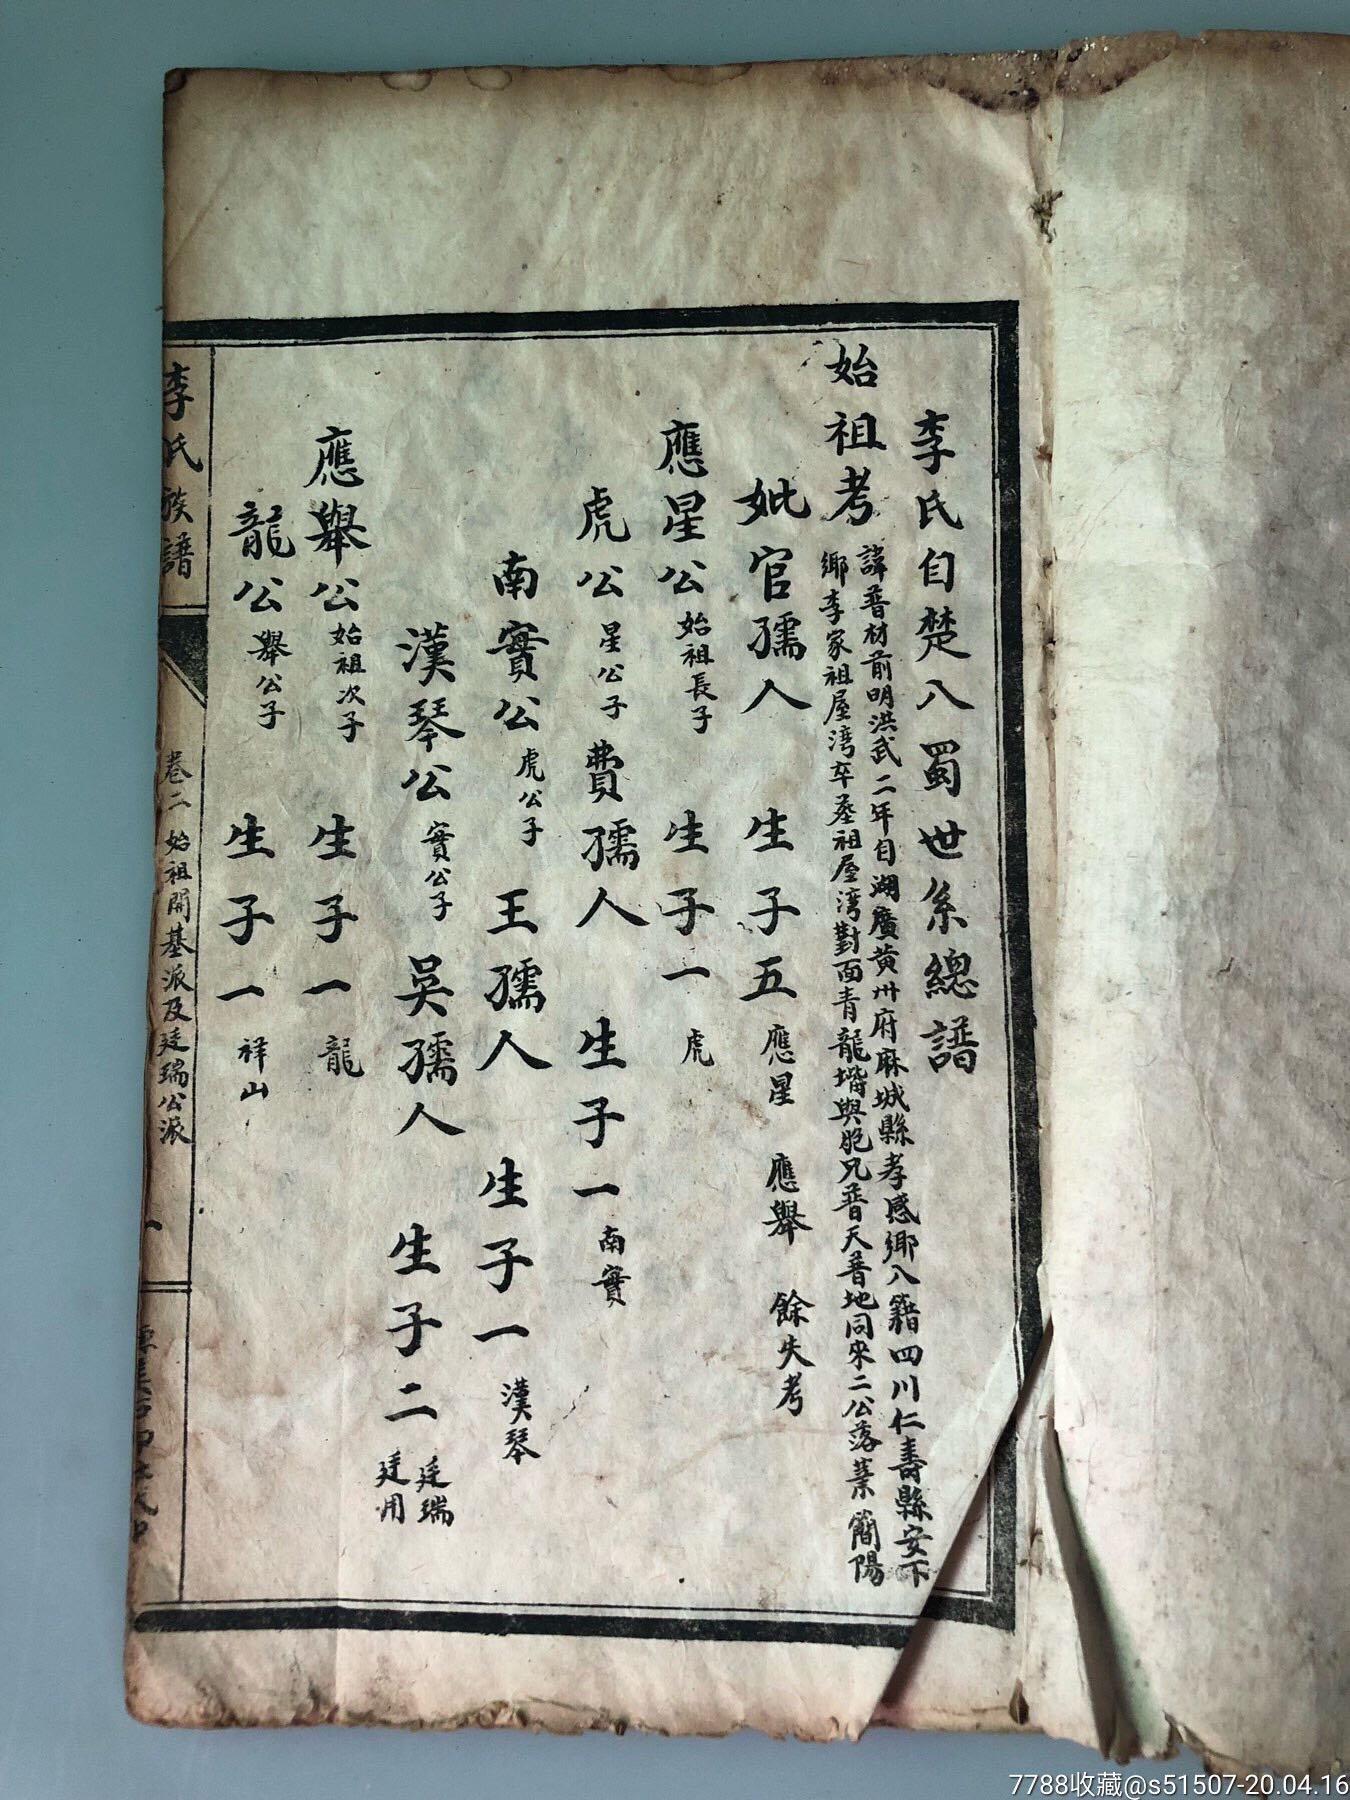 李氏自楚入蜀世系總譜
始祖考
諱普材前明洪武二年自湖廣黄州府麻城縣孝感鄉入籍四川仁壽縣安下
鄉李家祖屋湾卒塟祖屋湾對面青龍堦與胞兄普天普地同來二公落業簡陽
妣官孺人 生子五 應星 應舉 餘失考
應星公 始祖長子 生子一 虎
虎公 星公子 費孺人 生子一 南實
南實公 虎公子 王孺人 生子一 漢琴
漢琴公 實公子 吳孺人 生子二 廷瑞
廷用
應舉公 始祖次子 生子一 龍
龍公 舉公子 生子一 祥山
李氏族譜
卷二 始祖開基派及廷瑞公派
一
7788收藏@s51507-20.04.16